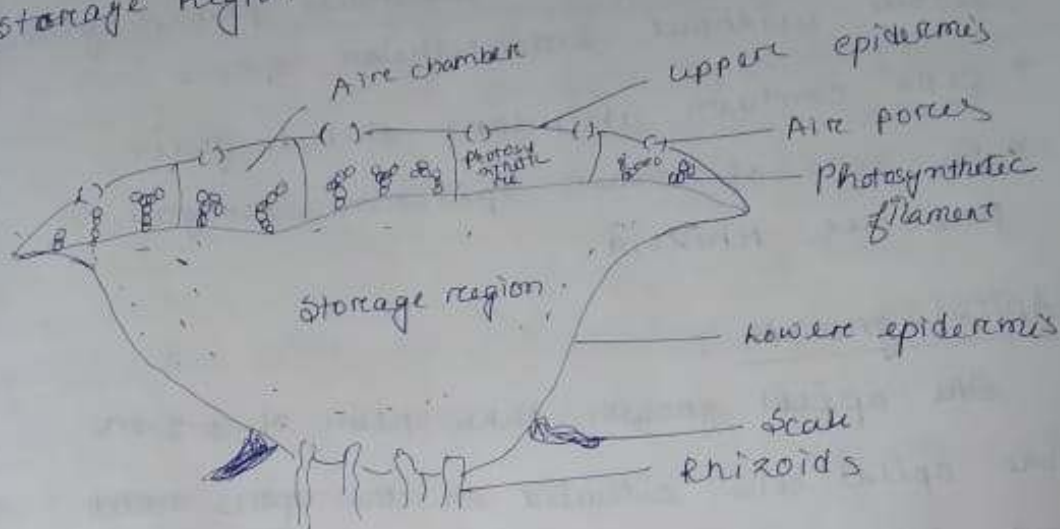 storage regi
Aire chamber
upper epidermis
Aire pores
Photosy
nthetic
Photosynthetic
filament
Storage region
Lowere epidermis
Scale
Rhizoids